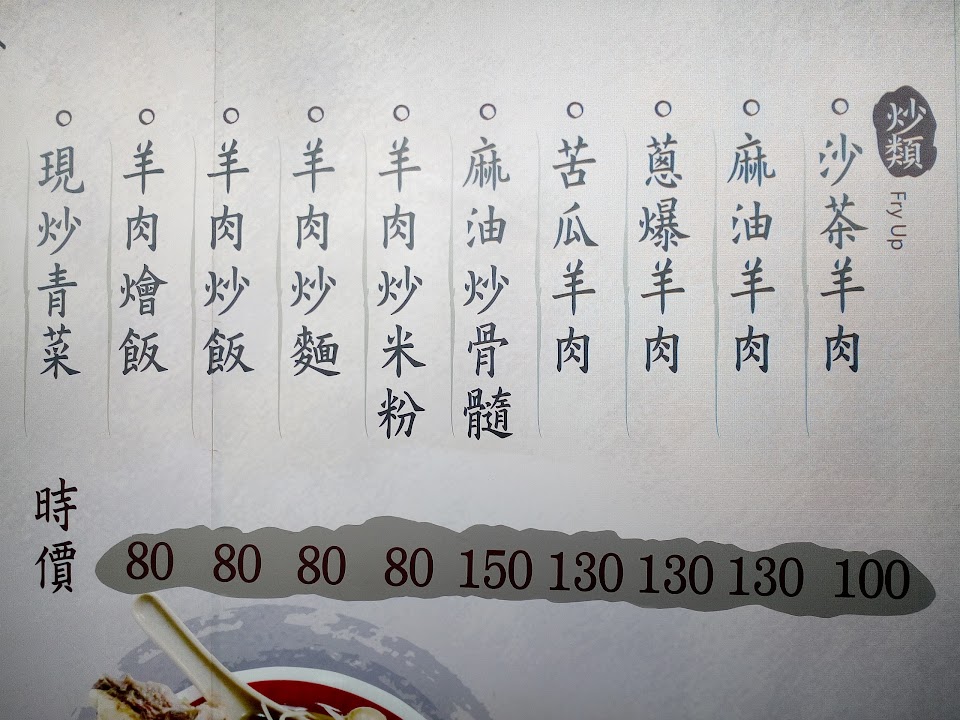 炒類
Fry Up
沙茶羊肉 100
麻油羊肉 130
蔥爆羊肉 130
苦瓜羊肉 130
麻油炒骨髓 150
羊肉炒米粉 80
羊肉炒麵 80
羊肉炒飯 80
羊肉燴飯 80
現炒青菜 時價